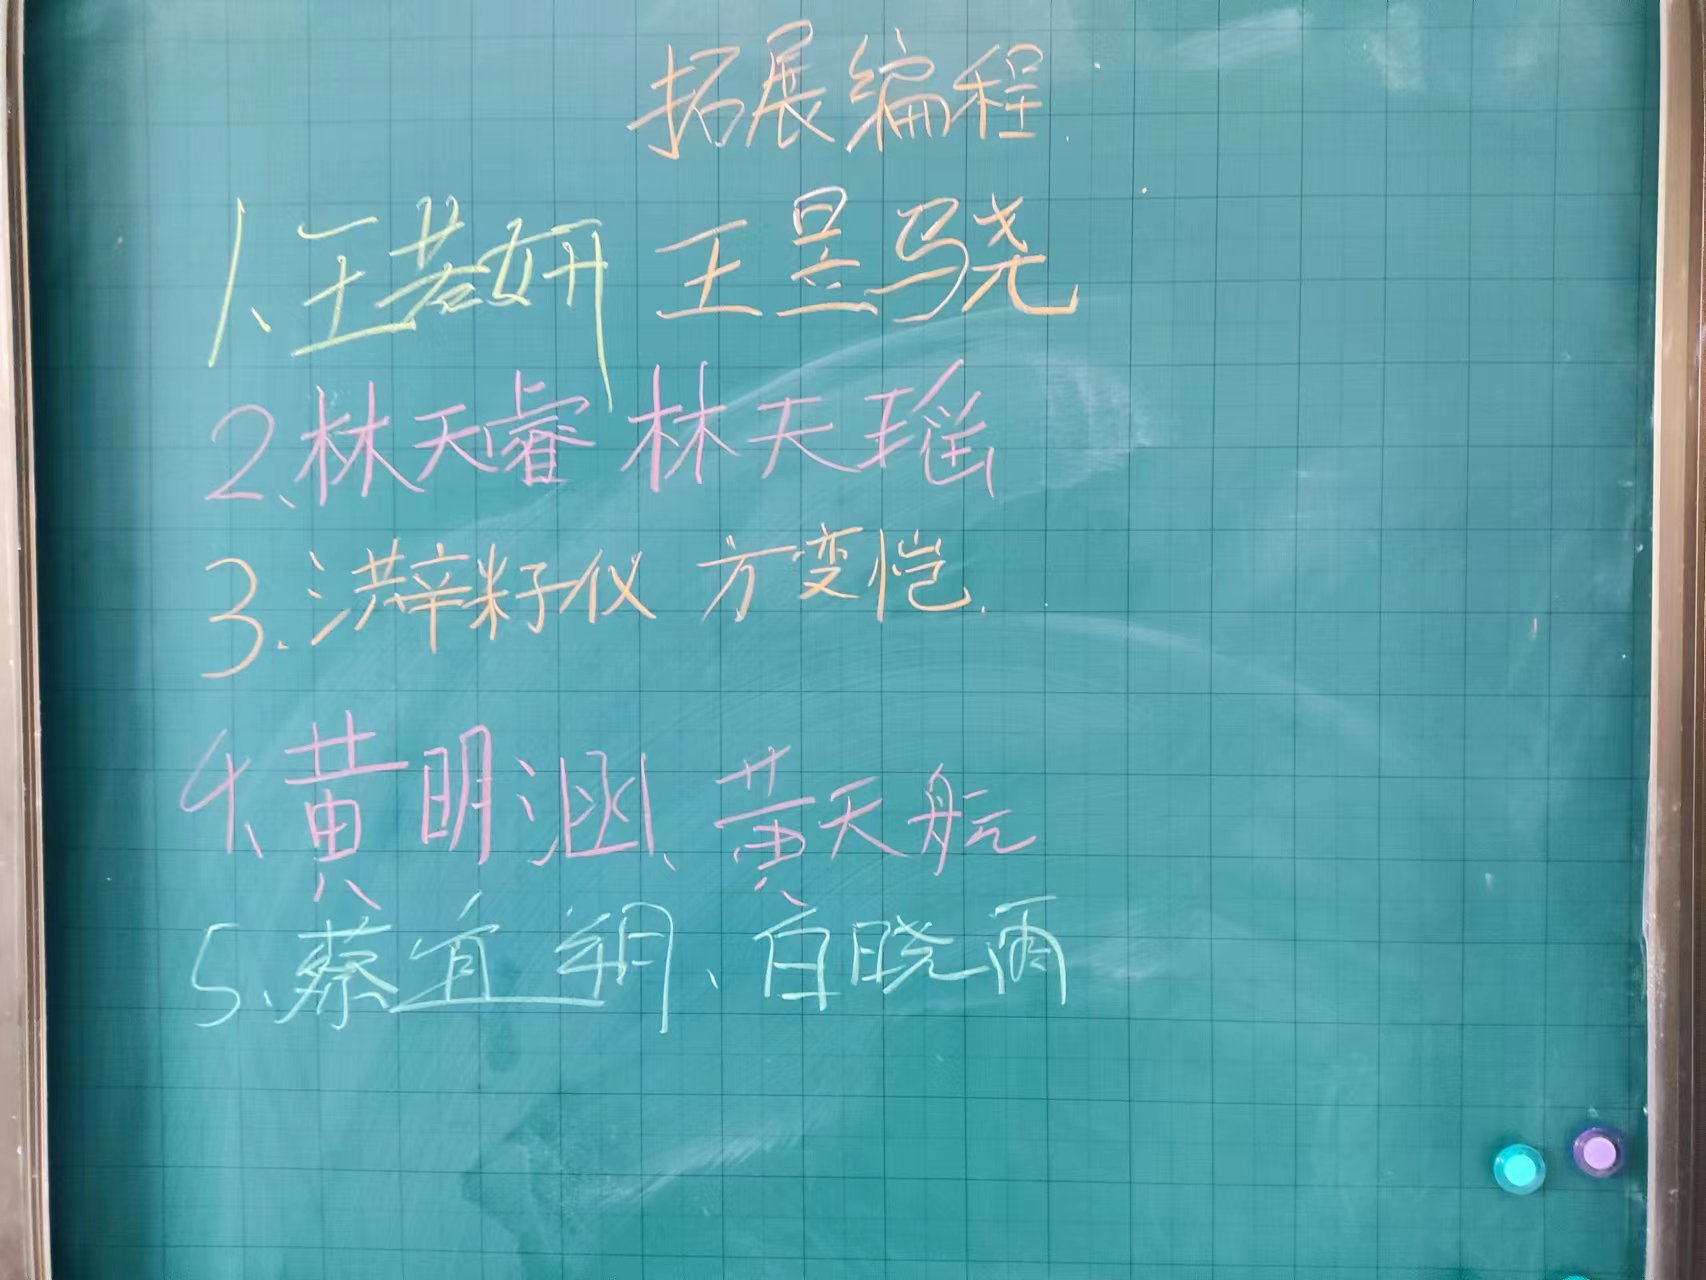 拓展编程
1、王若妍 王昱骁
2、林天睿 林天瑶
3.洪梓籽仪 方变恺
4、黄明涵、黄天航
5、蔡宜玥、白晓雨